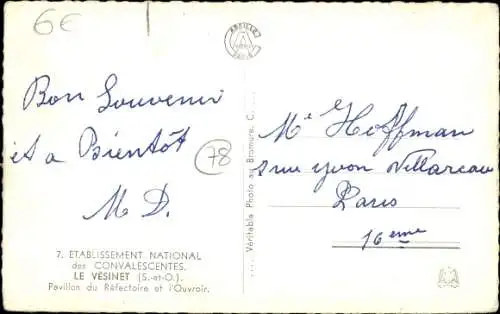 6€
ABEILLE
PARIS
Bon Souvenir
et a Bientôt
M D.
78
7. ETABLISSEMENT NATIONAL
des CONVALESCENTES.
LE VESINET (S.-et-O.)
Pavillon du Réfectoire et l'Ouvroir.
Véritable Photo au Bromure, C.
Me Hoffman
5 rue Yvon Villarceau
Paris
16eme